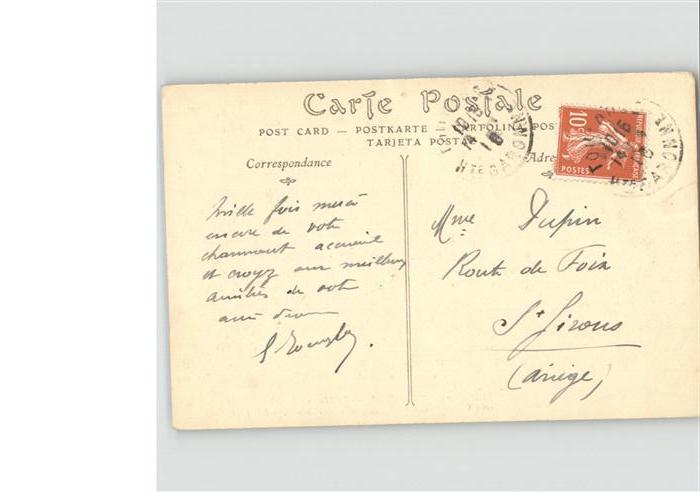 Carte Postale
POST CARD — POSTKARTE
TARJETA POSTAL
Correspondance
Mille fois merci
encore de votre
charmant accueil
et croyez aux meilleures
amitiés de votre
ami
Mme Dupin
Route de Foix
St Girons
(Ariège)
10
POSTES
HTE GARONNE